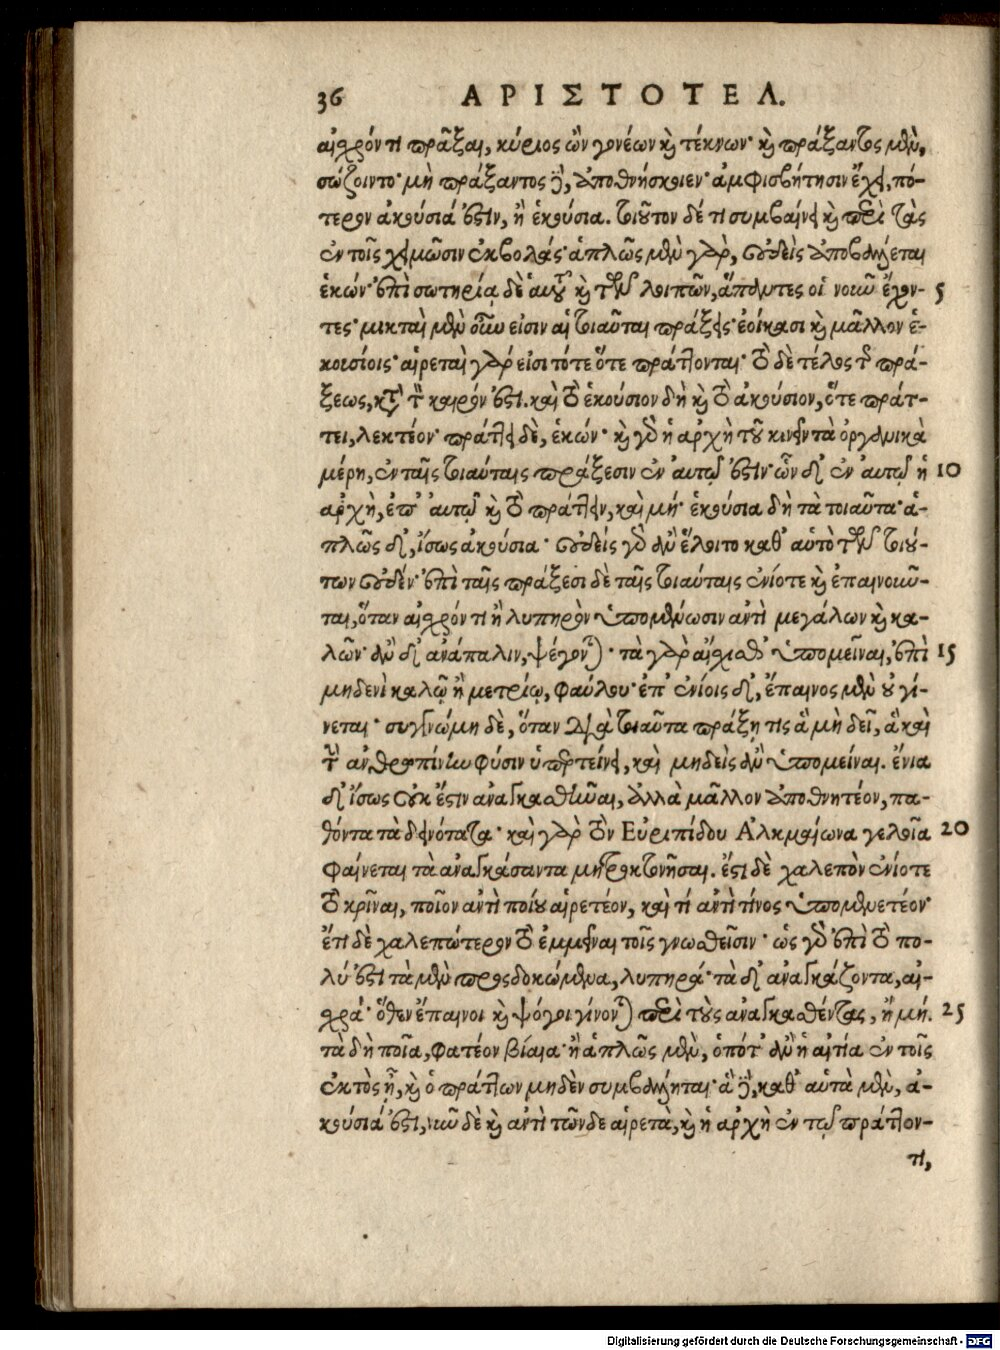 36 ΑΡΙΣΤΟΤΕΛ.
αἰσχρόν τι πρᾶξαι, κύριος ὢν γονέων καὶ τέκνων· καὶ πράξαντος μὲν,
σώζοιντο· μὴ πράξαντος δὲ, ἀποθνήσκοιεν· ἀμφισβήτησιν ἔχει, πό-
τερον ἀκούσιά ἐστιν, ἢ ἑκούσια. τοιοῦτον δέ τι συμβαίνει καὶ περὶ τὰς
ἐν τοῖς χειμῶσιν ἐκβολάς· ἁπλῶς μὲν γὰρ, οὐδεὶς ἀποβάλλεται
ἑκών· ἐπὶ σωτηρίᾳ δὲ αὑτοῦ καὶ τῶν λοιπῶν, ἅπαντες οἱ νοῦν ἔχον- 5
τες· μικταὶ μὲν οὖν εἰσιν αἱ τοιαῦται πράξεις· ἐοίκασι καὶ μᾶλλον ἑ-
κουσίοις· αἱρεταὶ γάρ εἰσι τότε ὅτε πράττονται· τὸ δὲ τέλος τῆς πρά-
ξεως, κατὰ τὸν καιρόν ἐστι. καὶ τὸ ἑκούσιον δὴ καὶ τὸ ἀκούσιον, ὅτε πράτ-
τει, λεκτέον· πράττει δὲ, ἑκών· καὶ γὰρ ἡ ἀρχὴ τοῦ κινεῖν τὰ ὀργανικὰ
μέρη, ἐν ταῖς τοιαύταις πράξεσιν ἐν αὐτῷ ἐστιν· ὧν δ' ἐν αὐτῷ ἡ 10
ἀρχὴ, ἐπ' αὐτῷ καὶ τὸ πράττειν, καὶ μή· ἑκούσια δὴ τὰ τοιαῦτα· ἁ-
πλῶς δ', ἴσως ἀκούσια· οὐδεὶς γὰρ ἂν ἕλοιτο καθ' αὑτὸ τῶν τοιού-
των οὐδέν· ἐπὶ ταῖς πράξεσι δὲ ταῖς τοιαύταις ἐνίοτε καὶ ἐπαινοῦν-
ται, ὅταν αἰσχρόν τι ἢ λυπηρὸν ὑπομένωσιν ἀντὶ μεγάλων καὶ κα-
λῶν· ἂν δ' ἀνάπαλιν, ψέγονται· τὰ γὰρ αἴσχισθ' ὑπομεῖναι, ἐπὶ 15
μηδενὶ καλῷ ἢ μετρίῳ, φαύλου· ἐπ' ἐνίοις δ', ἔπαινος μὲν οὐ γί-
νεται· συγγνώμη δὲ, ὅταν διὰ τοιαῦτα πράξῃ τις ἃ μὴ δεῖ, ἃ καὶ
τὴν ἀνθρωπίνην φύσιν ὑπερτείνει, καὶ μηδεὶς ἂν ὑπομείναι. ἔνια
δ' ἴσως οὐκ ἔστιν ἀναγκασθῆναι, ἀλλὰ μᾶλλον ἀποθνητέον, πα-
θόντα τὰ δεινότατα· καὶ γὰρ τὸν Εὐριπίδου Ἀλκμαίωνα γελοῖα 20
φαίνεται τὰ ἀναγκάσαντα μητροκτονῆσαι. ἔστι δὲ χαλεπὸν ἐνίοτε
τὸ κρῖναι, ποῖον ἀντὶ ποίου αἱρετέον, καὶ τί ἀντὶ τίνος ὑπομενετέον·
ἔτι δὲ χαλεπώτερον τὸ ἐμμεῖναι τοῖς γνωσθεῖσιν· ὡς γὰρ ἐπὶ τὸ πο-
λύ ἐστι τὰ μὲν προσδοκώμενα, λυπηρά· τὰ δ' ἀναγκάζοντα, αἰ-
σχρά· ὅθεν ἔπαινοι καὶ ψόγοι γίνονται περὶ τοὺς ἀναγκασθέντας, ἢ μή. 25
τὰ δὴ ποῖα, φατέον βίαια· ἢ ἁπλῶς μὲν, ὁπότ' ἂν ἡ αἰτία ἐν τοῖς
ἐκτὸς ᾖ, καὶ ὁ πράττων μηδὲν συμβάλληται· ἃ δὲ, καθ' αὑτὰ μὲν, ἀ-
κούσιά ἐστι, νῦν δὲ καὶ ἀντὶ τῶνδε αἱρετὰ, καὶ ἡ ἀρχὴ ἐν τῷ πράττον-
τι,
Digitalisierung gefördert durch die Deutsche Forschungsgemeinschaft - DFG